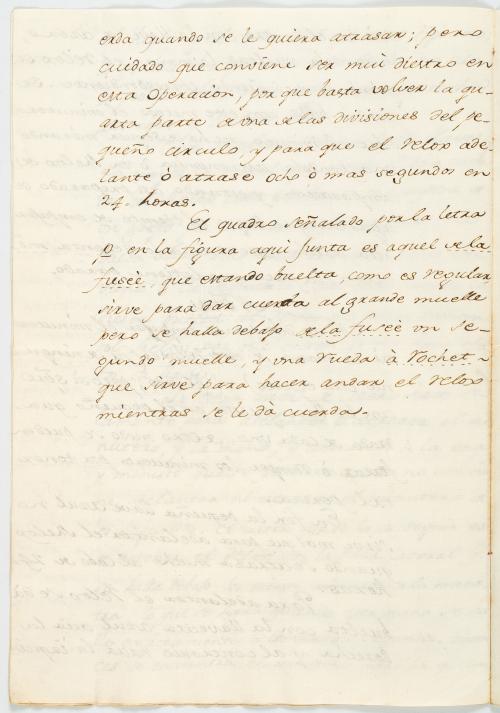 erda quando se le quiera atrasar; pero
cuidado que conviene ser mui diestro en
esta operacion, por que basta volver la qu-
arta parte de una de las divisiones del pe-
queño circulo, y para que el relox ade-
lante ò atrase ocho ò mas segundos en
24. horas.
El quadro señalado por la letra
p en la figura aqui junta es aquel de la
fuseè, que estando buelta, como es regular
sirve para dar cuerda al grande muelle
pero se halla debajo de la fuseè un se-
gundo muelle, y una rueda à rochet -
que sirve para hacer andar el relox
mientras se le dà cuerda.